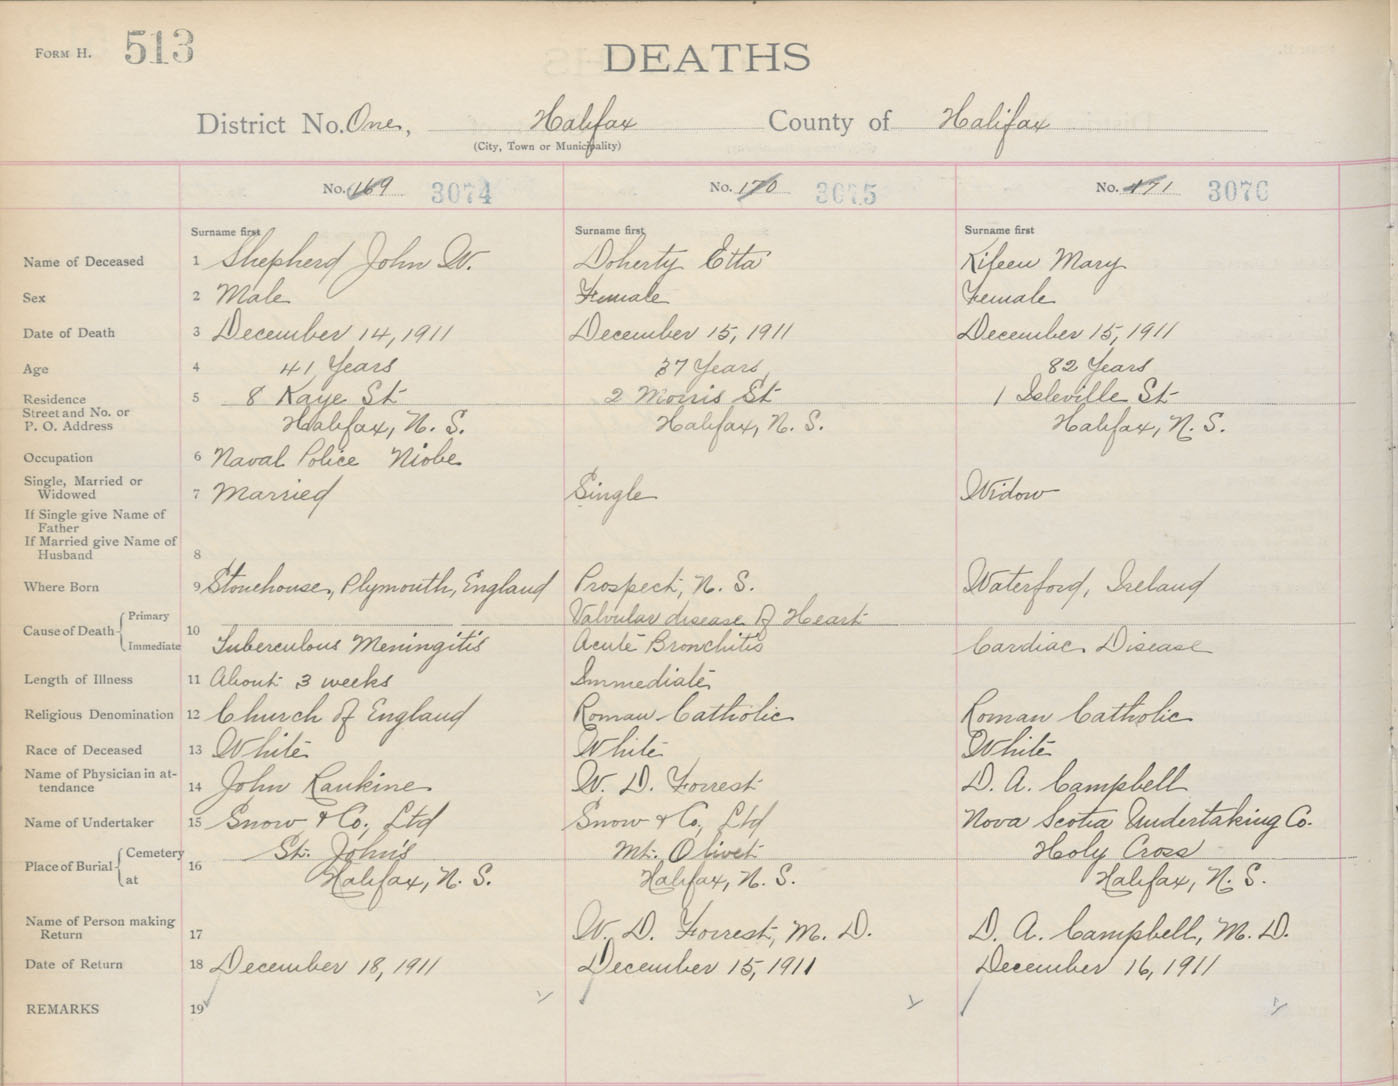 FORM H. 513
DEATHS
District No. One, Halifax County of Halifax
(City, Town or Municipality)
No. 169 3074 No. 170 3075 No. 171 3076
Surname first Surname first Surname first
Name of Deceased 1 Shepherd John W. Doherty Etta Kifeen Mary
Sex 2 Male Female Female
Date of Death 3 December 14, 1911 December 15, 1911 December 15, 1911
Age 4 41 Years 37 Years 82 Years
Residence 5 8 Kaye St 2 Morris St 1 Isleville St
Street and No. or
P. O. Address Halifax, N. S. Halifax, N. S. Halifax, N. S.
Occupation 6 Naval Police Niobe
Single, Married or
Widowed 7 Married Single Widow
If Single give Name of
Father
If Married give Name of
Husband 8
Where Born 9 Stonehouse, Plymouth, England Prospect, N. S. Waterford, Ireland
Primary Valvular disease of Heart
Cause of Death 10
Immediate Tuberculous Meningitis Acute Bronchitis Cardiac Disease
Length of Illness 11 About 3 weeks Immediate
Religious Denomination 12 Church of England Roman Catholic Roman Catholic
Race of Deceased 13 White White White
Name of Physician in at-
tendance 14 John Rankine W. D. Forrest D. A. Campbell
Name of Undertaker 15 Snow & Co., Ltd Snow & Co, Ltd Nova Scotia Undertaking Co.
Cemetery St. John's Mt. Olivet Holy Cross
Place of Burial 16
at Halifax, N. S. Halifax, N. S. Halifax, N. S.
Name of Person making
Return 17 W. D. Forrest, M. D. D. A. Campbell, M. D.
Date of Return 18 December 18, 1911 December 15, 1911 December 16, 1911
REMARKS 19